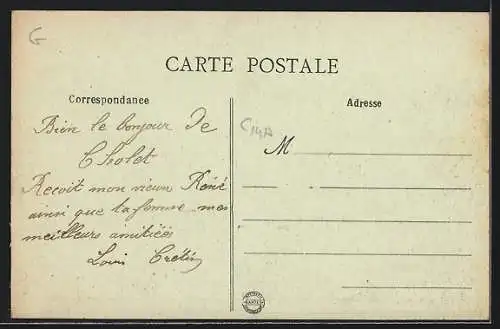 G
CARTE POSTALE
Correspondance
Adresse
C14A
M
Bien le bonjour de
Cholet
Recoit mon vieux René
ainsi que ta femme mes
meilleurs amitiées
Louis Cretin